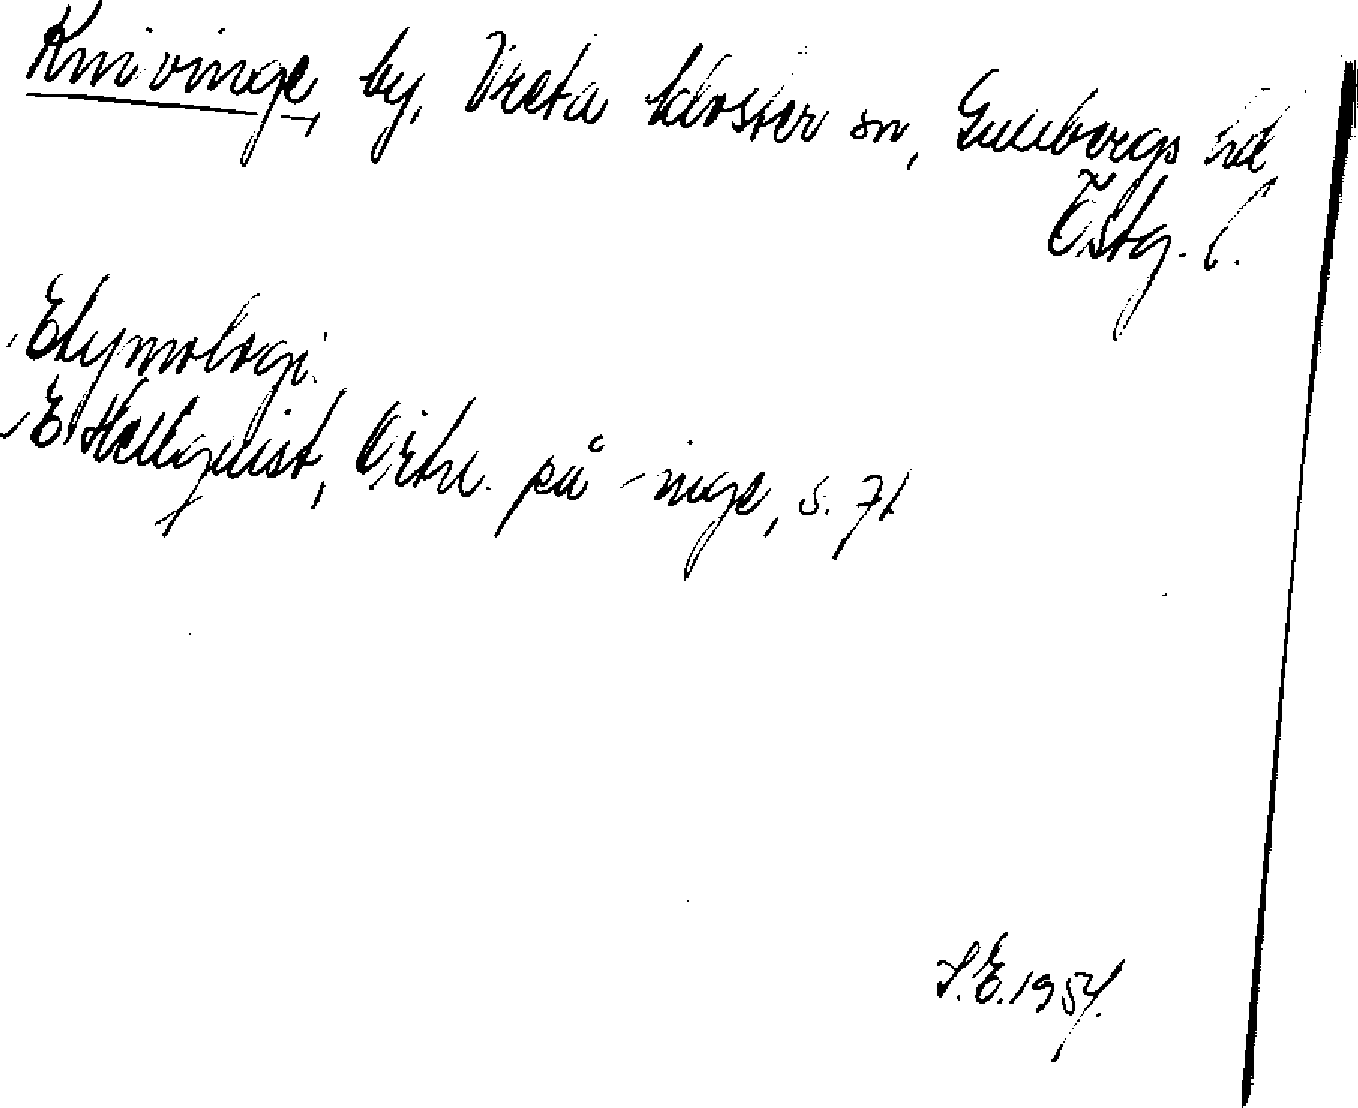 Knivinge, by, Vreta kloster sn, Gullbergs hd,
Östg. l.
Etymologi.
E. Hellquist, Ortn. på -inge, s. 71
S.E. 1954.